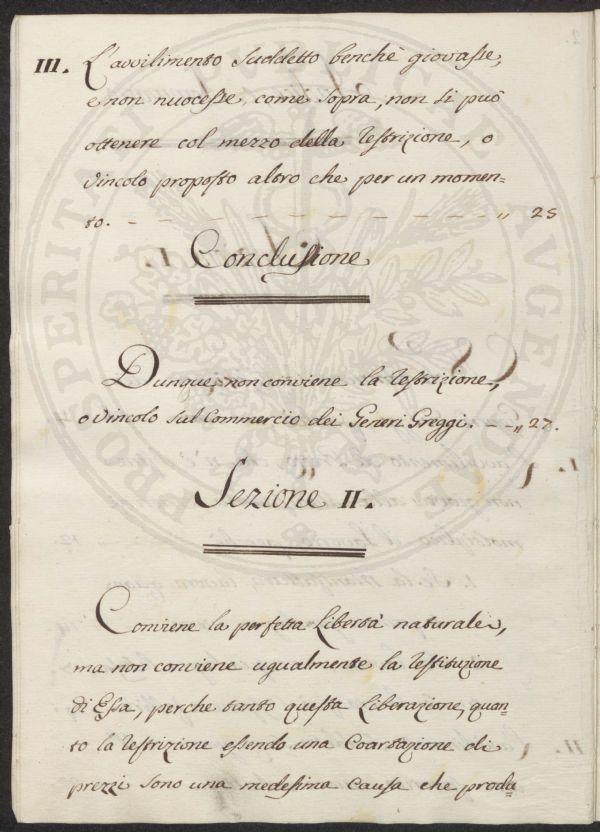 III. L'avvilimento suddetto benchè giovasse,
e non nuocesse, come sopra, non si può
ottenere col mezzo della restrizione, o
vincolo proposto altro che per un momen=
to. - - - - - - - - - - - - „ 25
Conclusione
Dunque non conviene la restrizione,
o vincolo sul Commercio dei Generi Greggi. - - „ 27.
Sezione II.
Conviene la perfetta Libertà naturale,
ma non conviene ugualmente la restituzione
di Essa, perche tanto questa Liberazione, quan=
to la restrizione essendo una Coartazione di
prezzi sono una medesima causa che produ=
PROSPERITATI PUBLICAE AUGENDAE